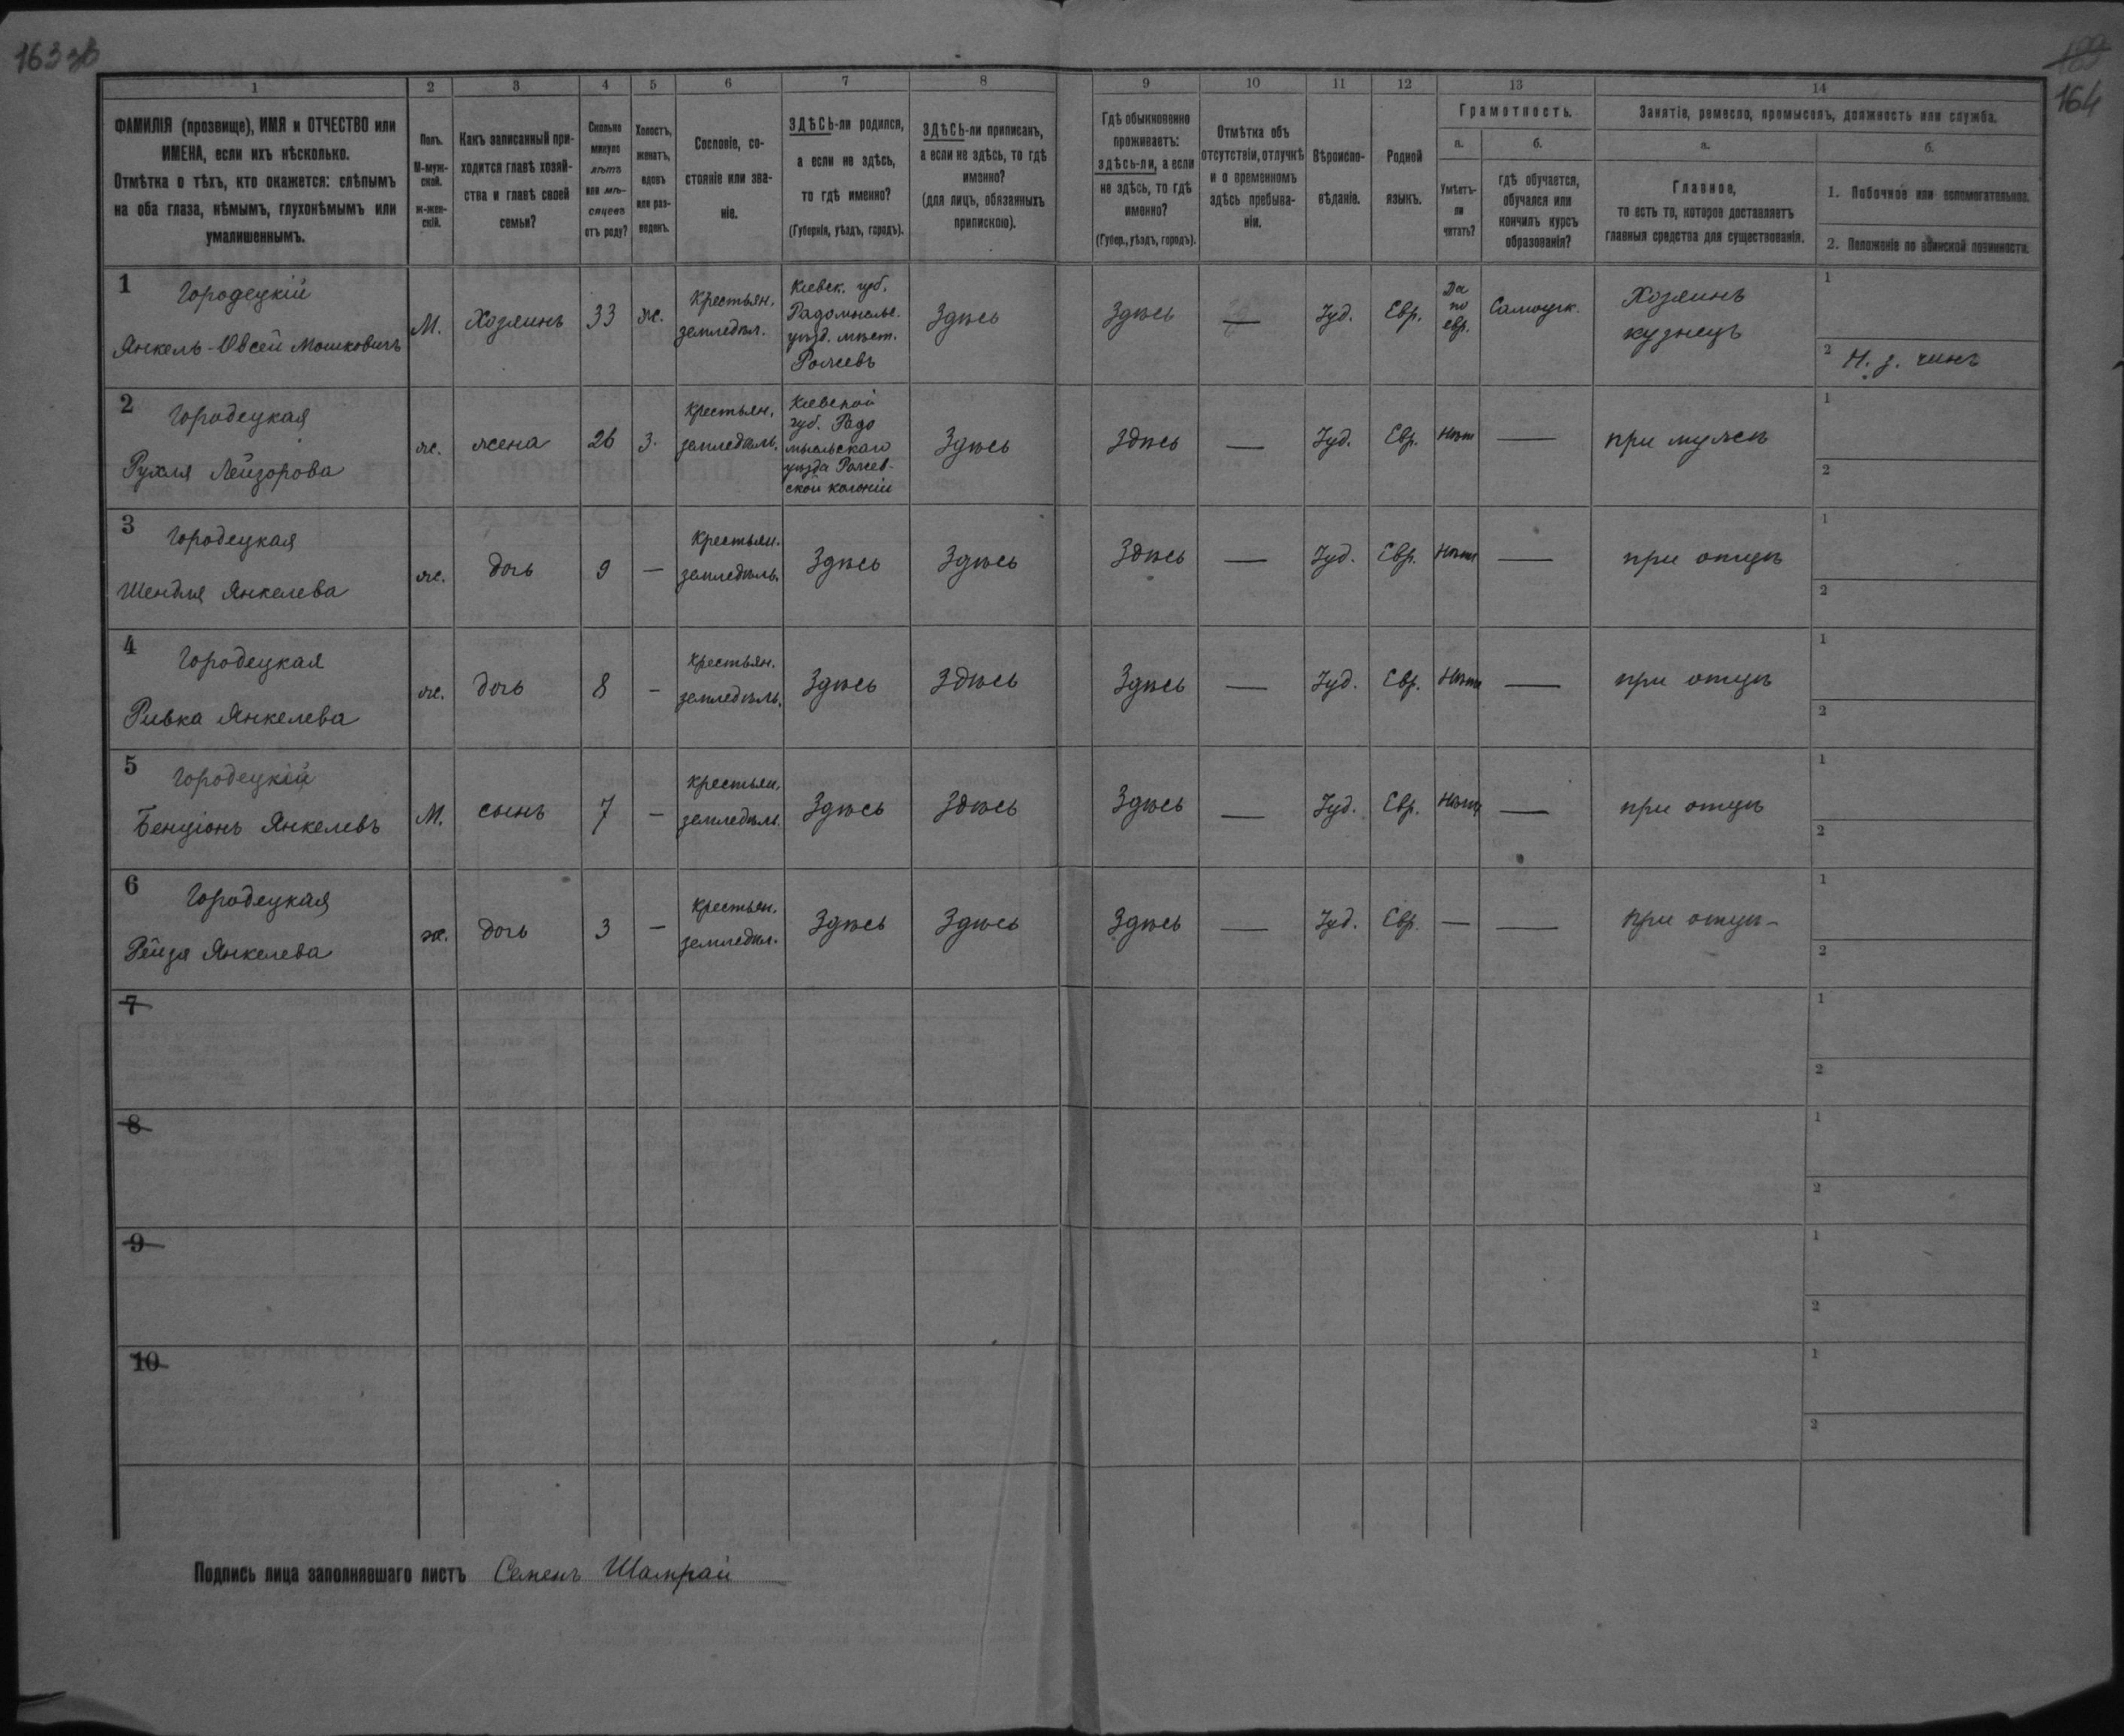 163 об
189
164
1
2
3
4
5
6
7
8
9
10
11
12
13
14
ФАМИЛІЯ (прозвище), ИМЯ и ОТЧЕСТВО или
ИМЕНА, если ихъ нѣсколько.
Отмѣтка о тѣхъ, кто окажется: слѣпымъ
на оба глаза, нѣмымъ, глухонѣмымъ или
умалишеннымъ.
Полъ.
М-муж-
ской.
ж-жен-
скій.
Какъ записанный при-
ходится главѣ хозяй-
ства и главѣ своей
семьи?
Сколько
минуло
лѣтъ
или мѣ-
сяцевъ
отъ роду?
Холостъ,
женатъ,
вдовъ
или раз-
веденъ.
Сословіе, со-
стояніе или зва-
ніе.
ЗДѢСЬ-ли родился,
а если не здѣсь,
то гдѣ именно?
(Губернія, уѣздъ, городъ).
ЗДѢСЬ-ли приписанъ,
а если не здѣсь, то гдѣ
именно?
(для лицъ, обязанныхъ
припискою).
Гдѣ обыкновенно
проживаетъ:
здѣсь-ли, а если
не здѣсь, то гдѣ
именно?
(Губер., уѣздъ, городъ).
Отмѣтка объ
отсутствіи, отлучкѣ
и о временномъ
здѣсь пребыва-
ніи.
Вѣроиспо-
вѣданіе.
Родной
языкъ.
Грамотность.
а.
Умѣетъ-
ли
читать?
б.
гдѣ обучается,
обучался или
кончилъ курсъ
образованія?
Занятіе, ремесло, промыселъ, должность или служба.
а.
Главное,
то есть то, которое доставляетъ
главныя средства для существованія.
б.
1. Побочное или вспомогательное.
2. Положеніе по воинской повинности.
1 Городецкій
Янкель-Овсей Мошковичъ
М.
Хозяинъ
33
ж.
Крестьян.
земледѣл.
Кіевск. губ.
Радомысльс.
уѣзд. мѣст.
Рожевъ
Здѣсь
Здѣсь
—
Іуд.
Евр.
Да
по
евр.
Самоучк.
Хозяинъ
кузнецъ
1
2 Н. з. чинъ
2 Городецкая
Рухля Лейзорова
ж.
жена
26
З.
Крестьян.
земледѣль.
Кіевской
губ. Радо
мысльскаго
уѣзда Рожев-
ской колоніи
Здѣсь
Здѣсь
—
Іуд.
Евр.
Нѣт
—
при мужѣ
1
2
3 Городецкая
Шендля Янкелева
ж.
дочь
9
—
Крестьян.
земледѣль.
Здѣсь
Здѣсь
Здѣсь
—
Іуд.
Евр.
Нѣтъ
—
при отцѣ
1
2
4 Городецкая
Ривка Янкелева
ж.
дочь
8
—
Крестьян.
земледѣль.
Здѣсь
Здѣсь
Здѣсь
—
Іуд.
Евр.
Нѣтъ
—
при отцѣ
1
2
5 Городецкій
Бенціонъ Янкелевъ
М.
сынъ
7
—
Крестьян.
земледѣль.
Здѣсь
Здѣсь
Здѣсь
—
Іуд.
Евр.
Нѣтъ
—
при отцѣ
1
2
6 Городецкая
Рейзя Янкелева
ж.
дочь
3
—
Крестьян.
земледѣл.
Здѣсь
Здѣсь
Здѣсь
—
Іуд.
Евр.
—
—
при отцѣ-
1
2
7
1
2
8
1
2
9
1
2
10
1
2
Подпись лица заполнявшаго листъ Семенъ Шампай